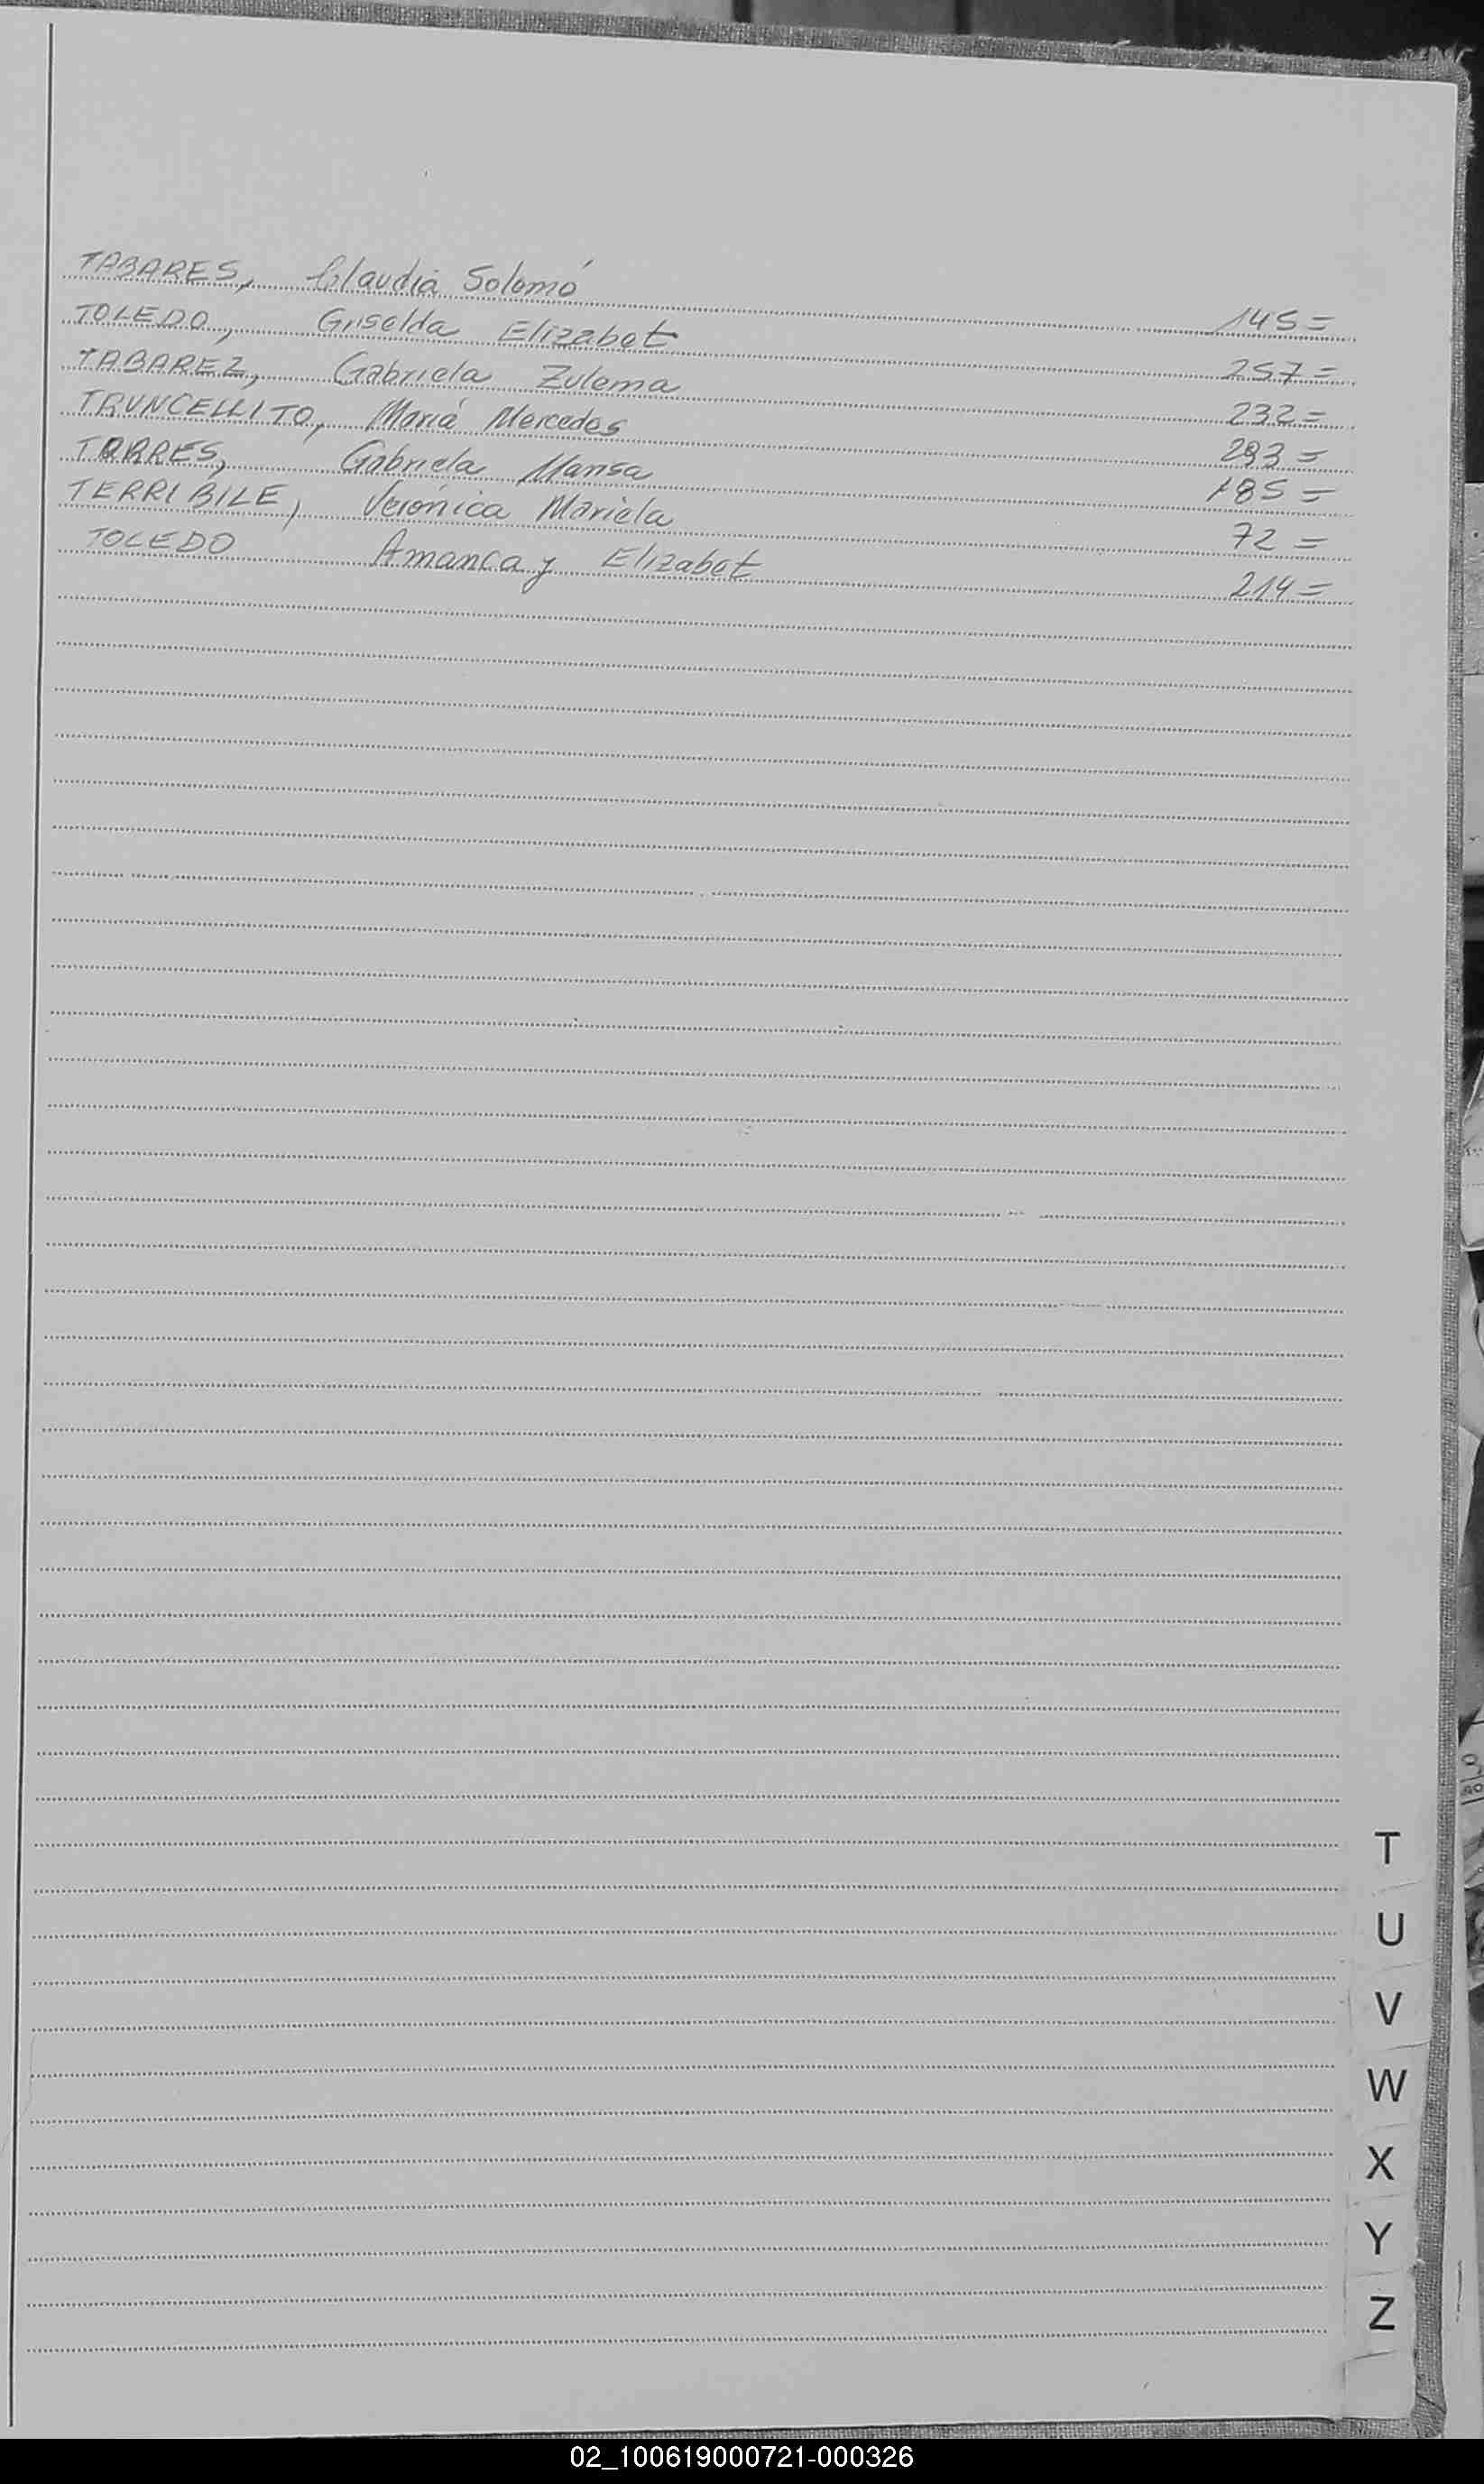 TABARES, Claudia Solomó 145=
TOLEDO, Griselda Elizabet 257=
TABAREZ, Gabriela Zulema 232=
TRUNCELLITO, Mariá Mercedes 293=
TORRES, Gabriela Marisa 185=
TERRIBILE, Verónica Mariela 72=
TOLEDO Amancay Elizabet 214=
T
U
V
W
X
Y
Z
02_100619000721-000326